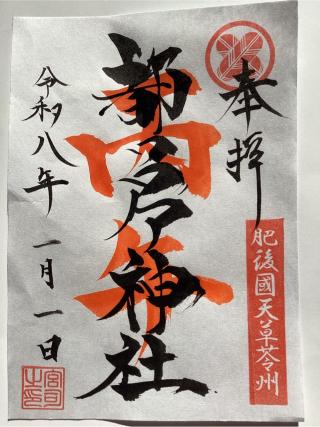 奉拝
肥後國天草苓州
都呂々神社
令和八年
一月一日
宮司之印